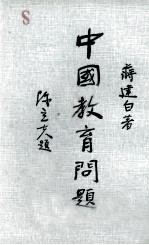 8
蔣建白著
中國教育問題
陳立夫題